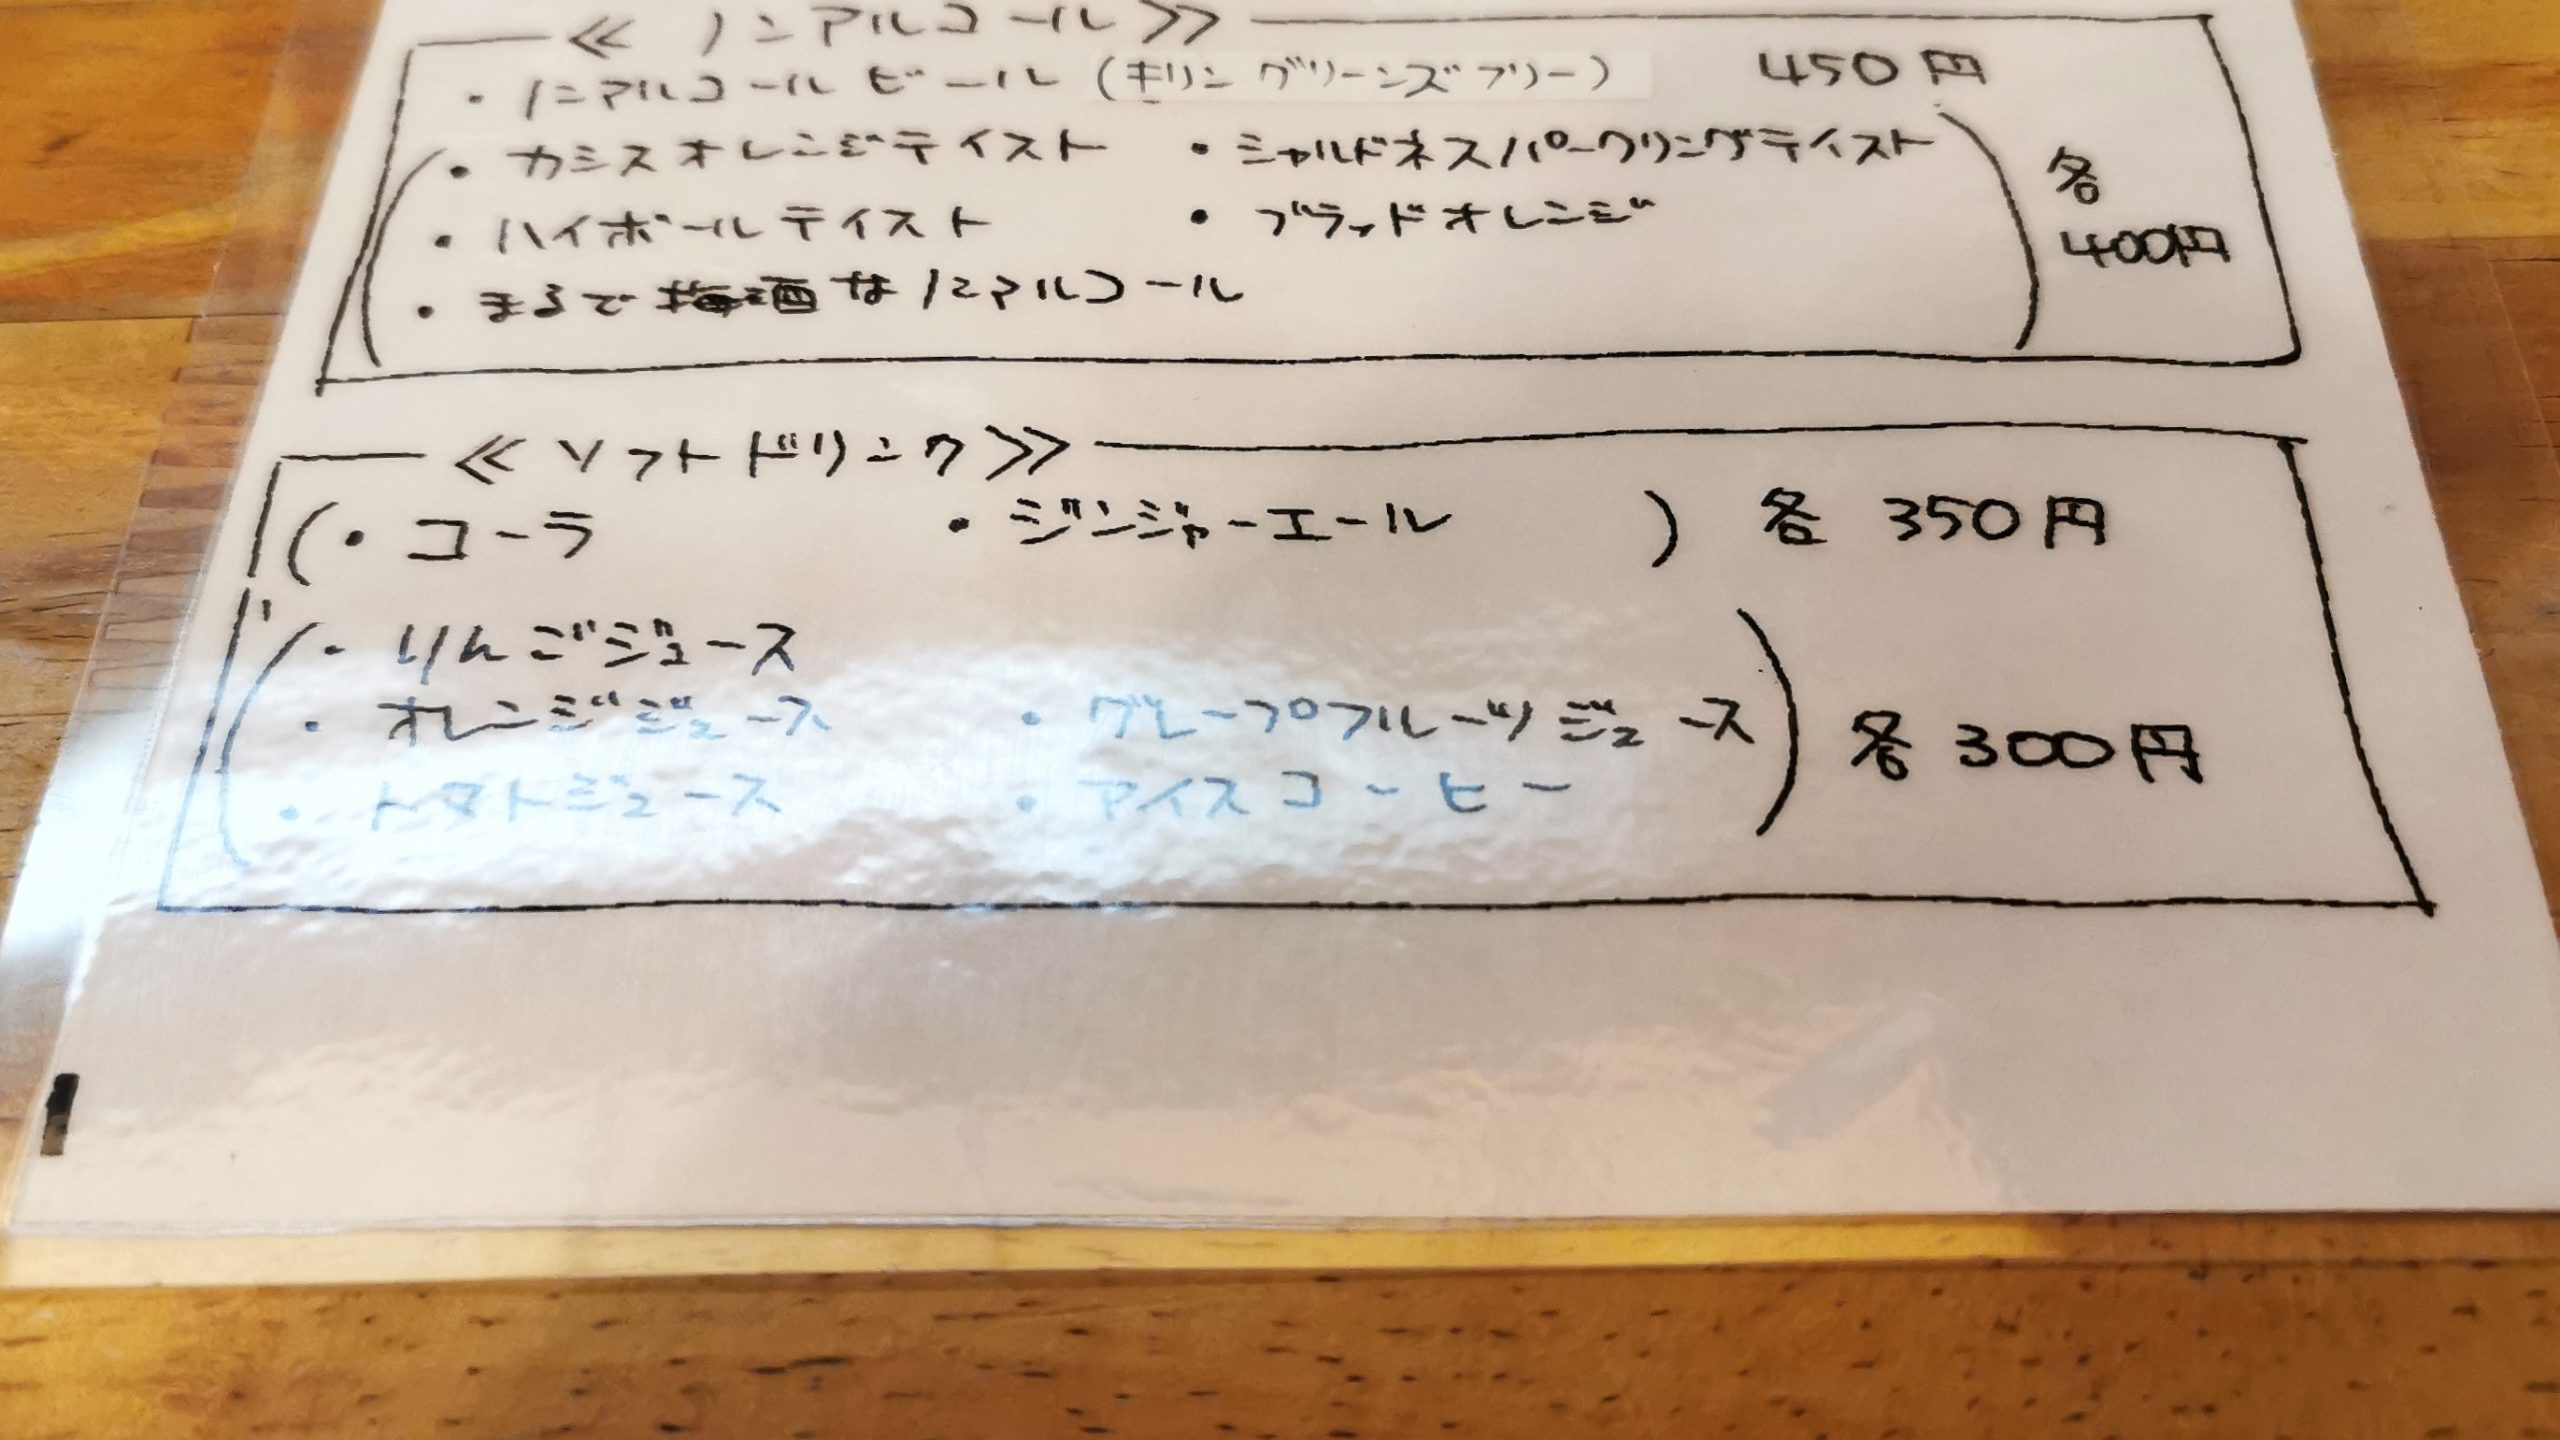 ≪ノンアルコール≫
・ノンアルコールビール(キリングリーンズフリー) 450円
(・カシスオレンジテイスト ・シャルドネスパークリングテイスト
・ハイボールテイスト ・ブラッドオレンジ
・まるで梅酒なノンアルコール) 各400円
≪ソフトドリンク≫
(・コーラ ・ジンジャーエール) 各 350円
(・りんごジュース
・オレンジジュース ・グレープフルーツジュース
・トマトジュース ・アイスコーヒー) 各 300円